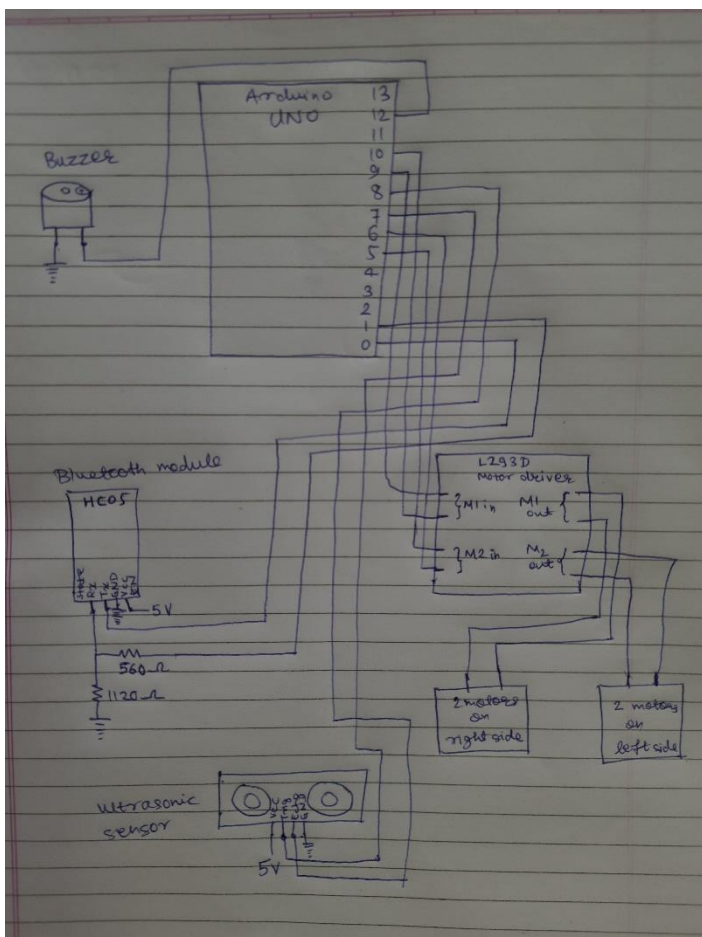 Arduino
UNO
13
12
11
10
9
8
7
6
5
4
3
2
1
0
Buzzer
Bluetooth module
HC05
State
Rx
Tx
GND
VCC
5V
560Ω
1120Ω
L293D
Motor driver
M1 in
M1
out
M2 in
M2
out
2 motors
on
right side
2 motors
on
left side
Ultrasonic
sensor
VCC
Trig
5V